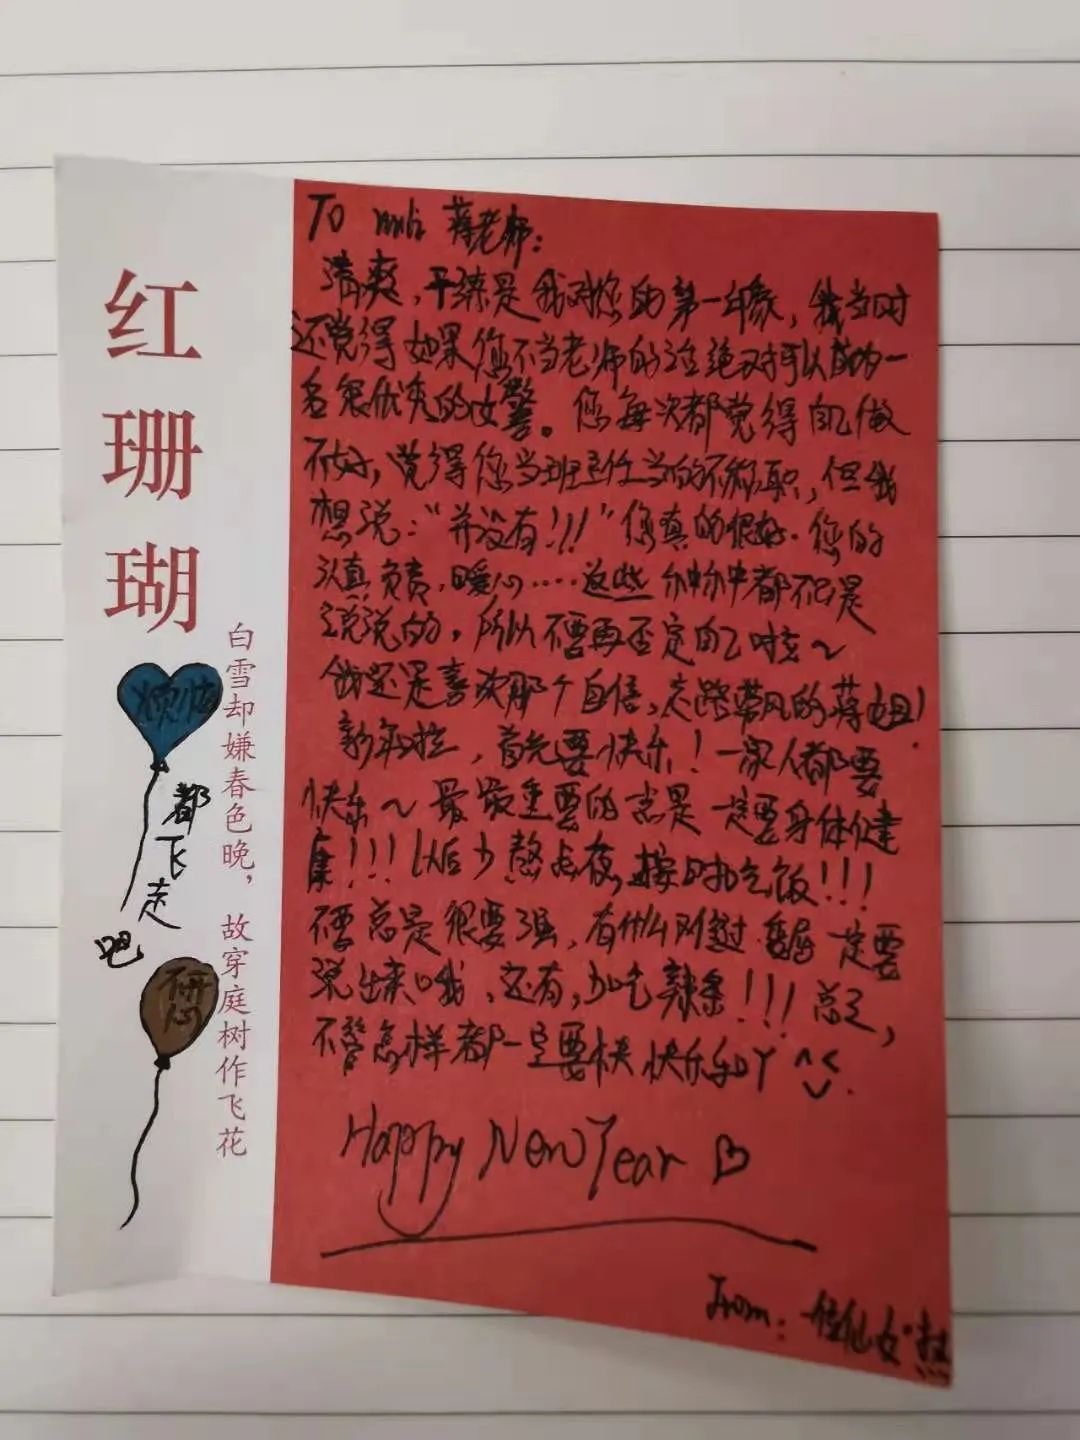 红珊瑚
白雪却嫌春色晚，故穿庭树作飞花
烦恼
都飞走吧
To 蒋老师：
清爽，干练是我对您的第一印象，我当时
还觉得如果您不当老师的话绝对可以成为一
名很优秀的女警。您每次都觉得自己做
不好，觉得您当班主任当的不称职，但我
想说：“并没有！!!”您真的很好.您的
认真负责，暖心....这些种种都不只是
说说的，所以不要再否定自己啦~
我还是喜欢那个自信、走路带风的蒋姐！
新年啦，首先要快乐！一家人都要
快乐~最最重要的当是一定要身体健
康！!!以后少熬点夜，按时吃饭！!!
不要总是很要强，有什么难过、委屈一定要
说出来哦，还有，少吃辣条！!!总之，
不管怎样都一定要快快乐乐吖^<
Happy New Year
From：仙女